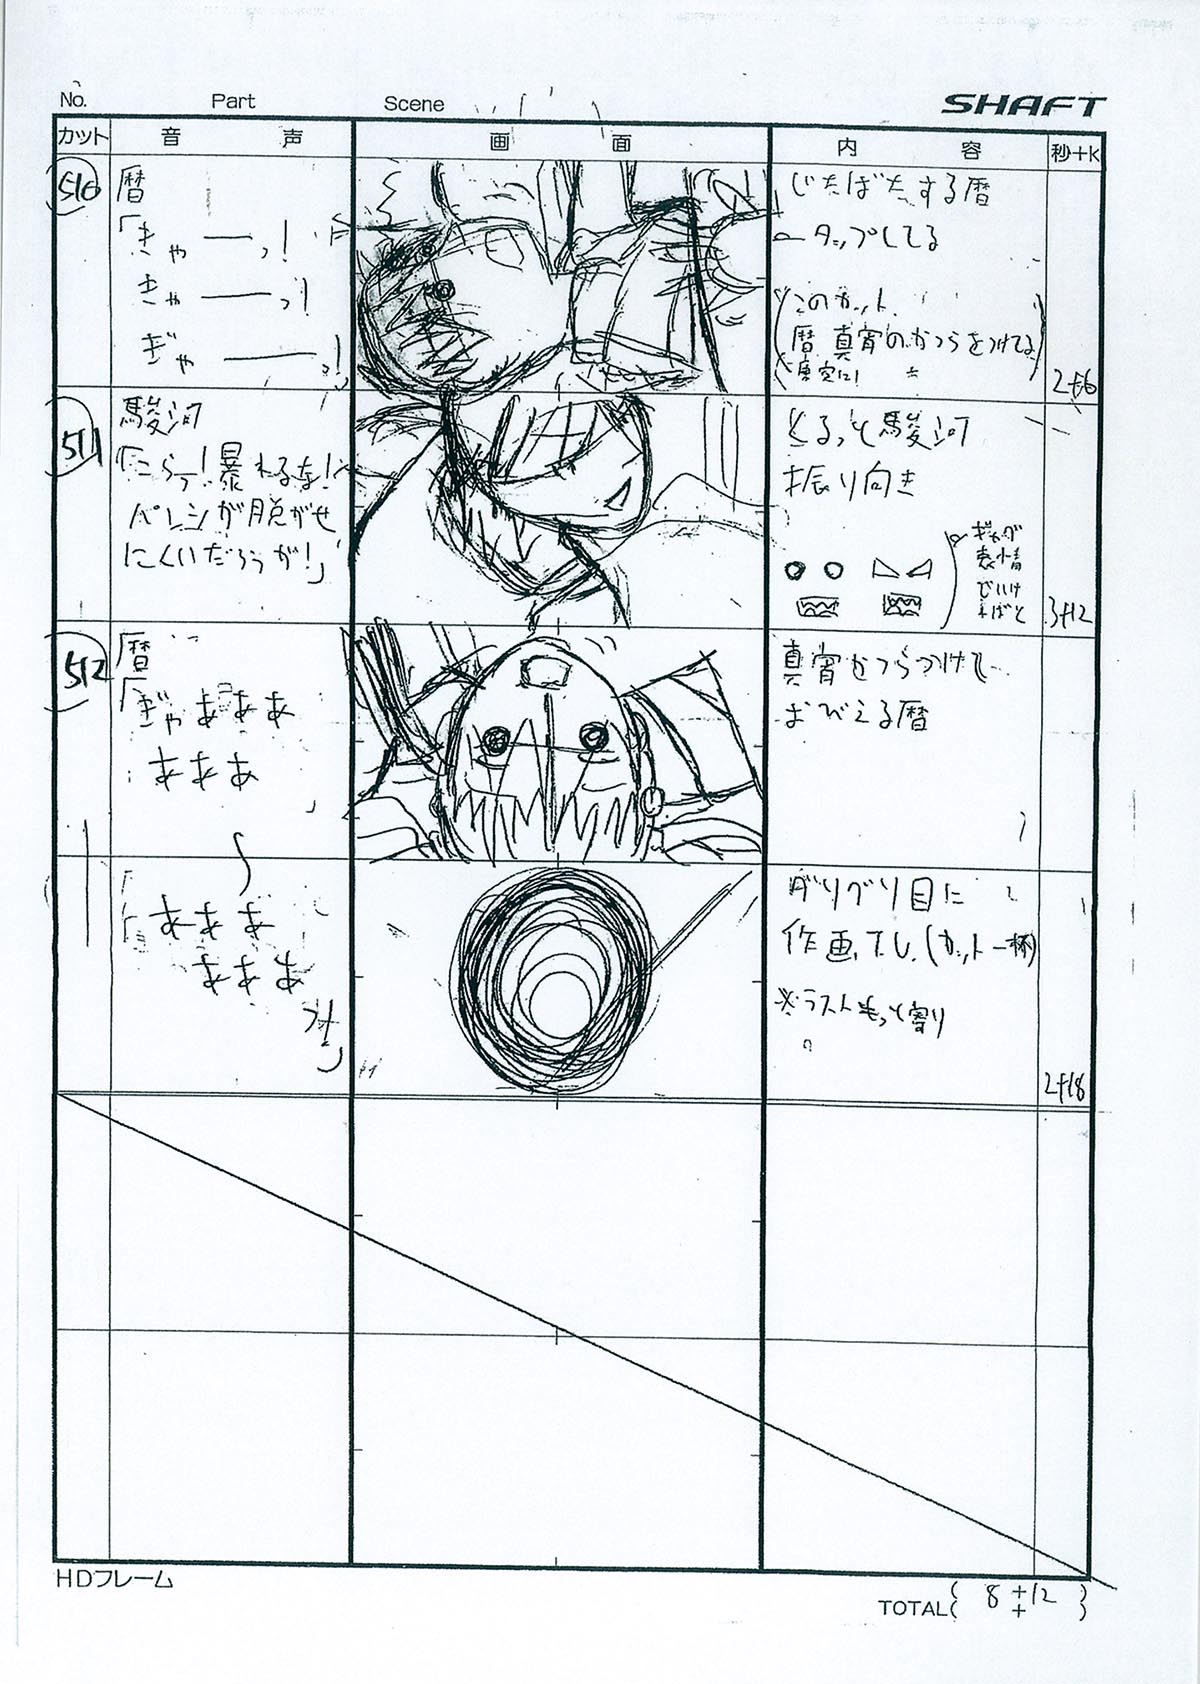 No. Part Scene SHAFT
カット 音声 画面 内容 秒+K
510
暦
「きゃーっ!
きゃーっ!
ぎゃー!
じたばたする暦
ータップしてる
このカット
暦 真宵のかつらをつけてる
2+6
511
駿河
「こらっ!暴れるな!
が脱がせ
にくいだろうが!」
くるっと駿河
振り向き
ギャグ
表情
でいけ
ればと
3+12
512
暦
「ぎゃあああ
あああ
真宵かつらつけて
おびえる暦
あああ
あああ
っ」
グリグリ目に
作画T.U.(カット一杯)
※ラストもっと寄り
2+18
HDフレーム
TOTAL( 8+12 )
( + )